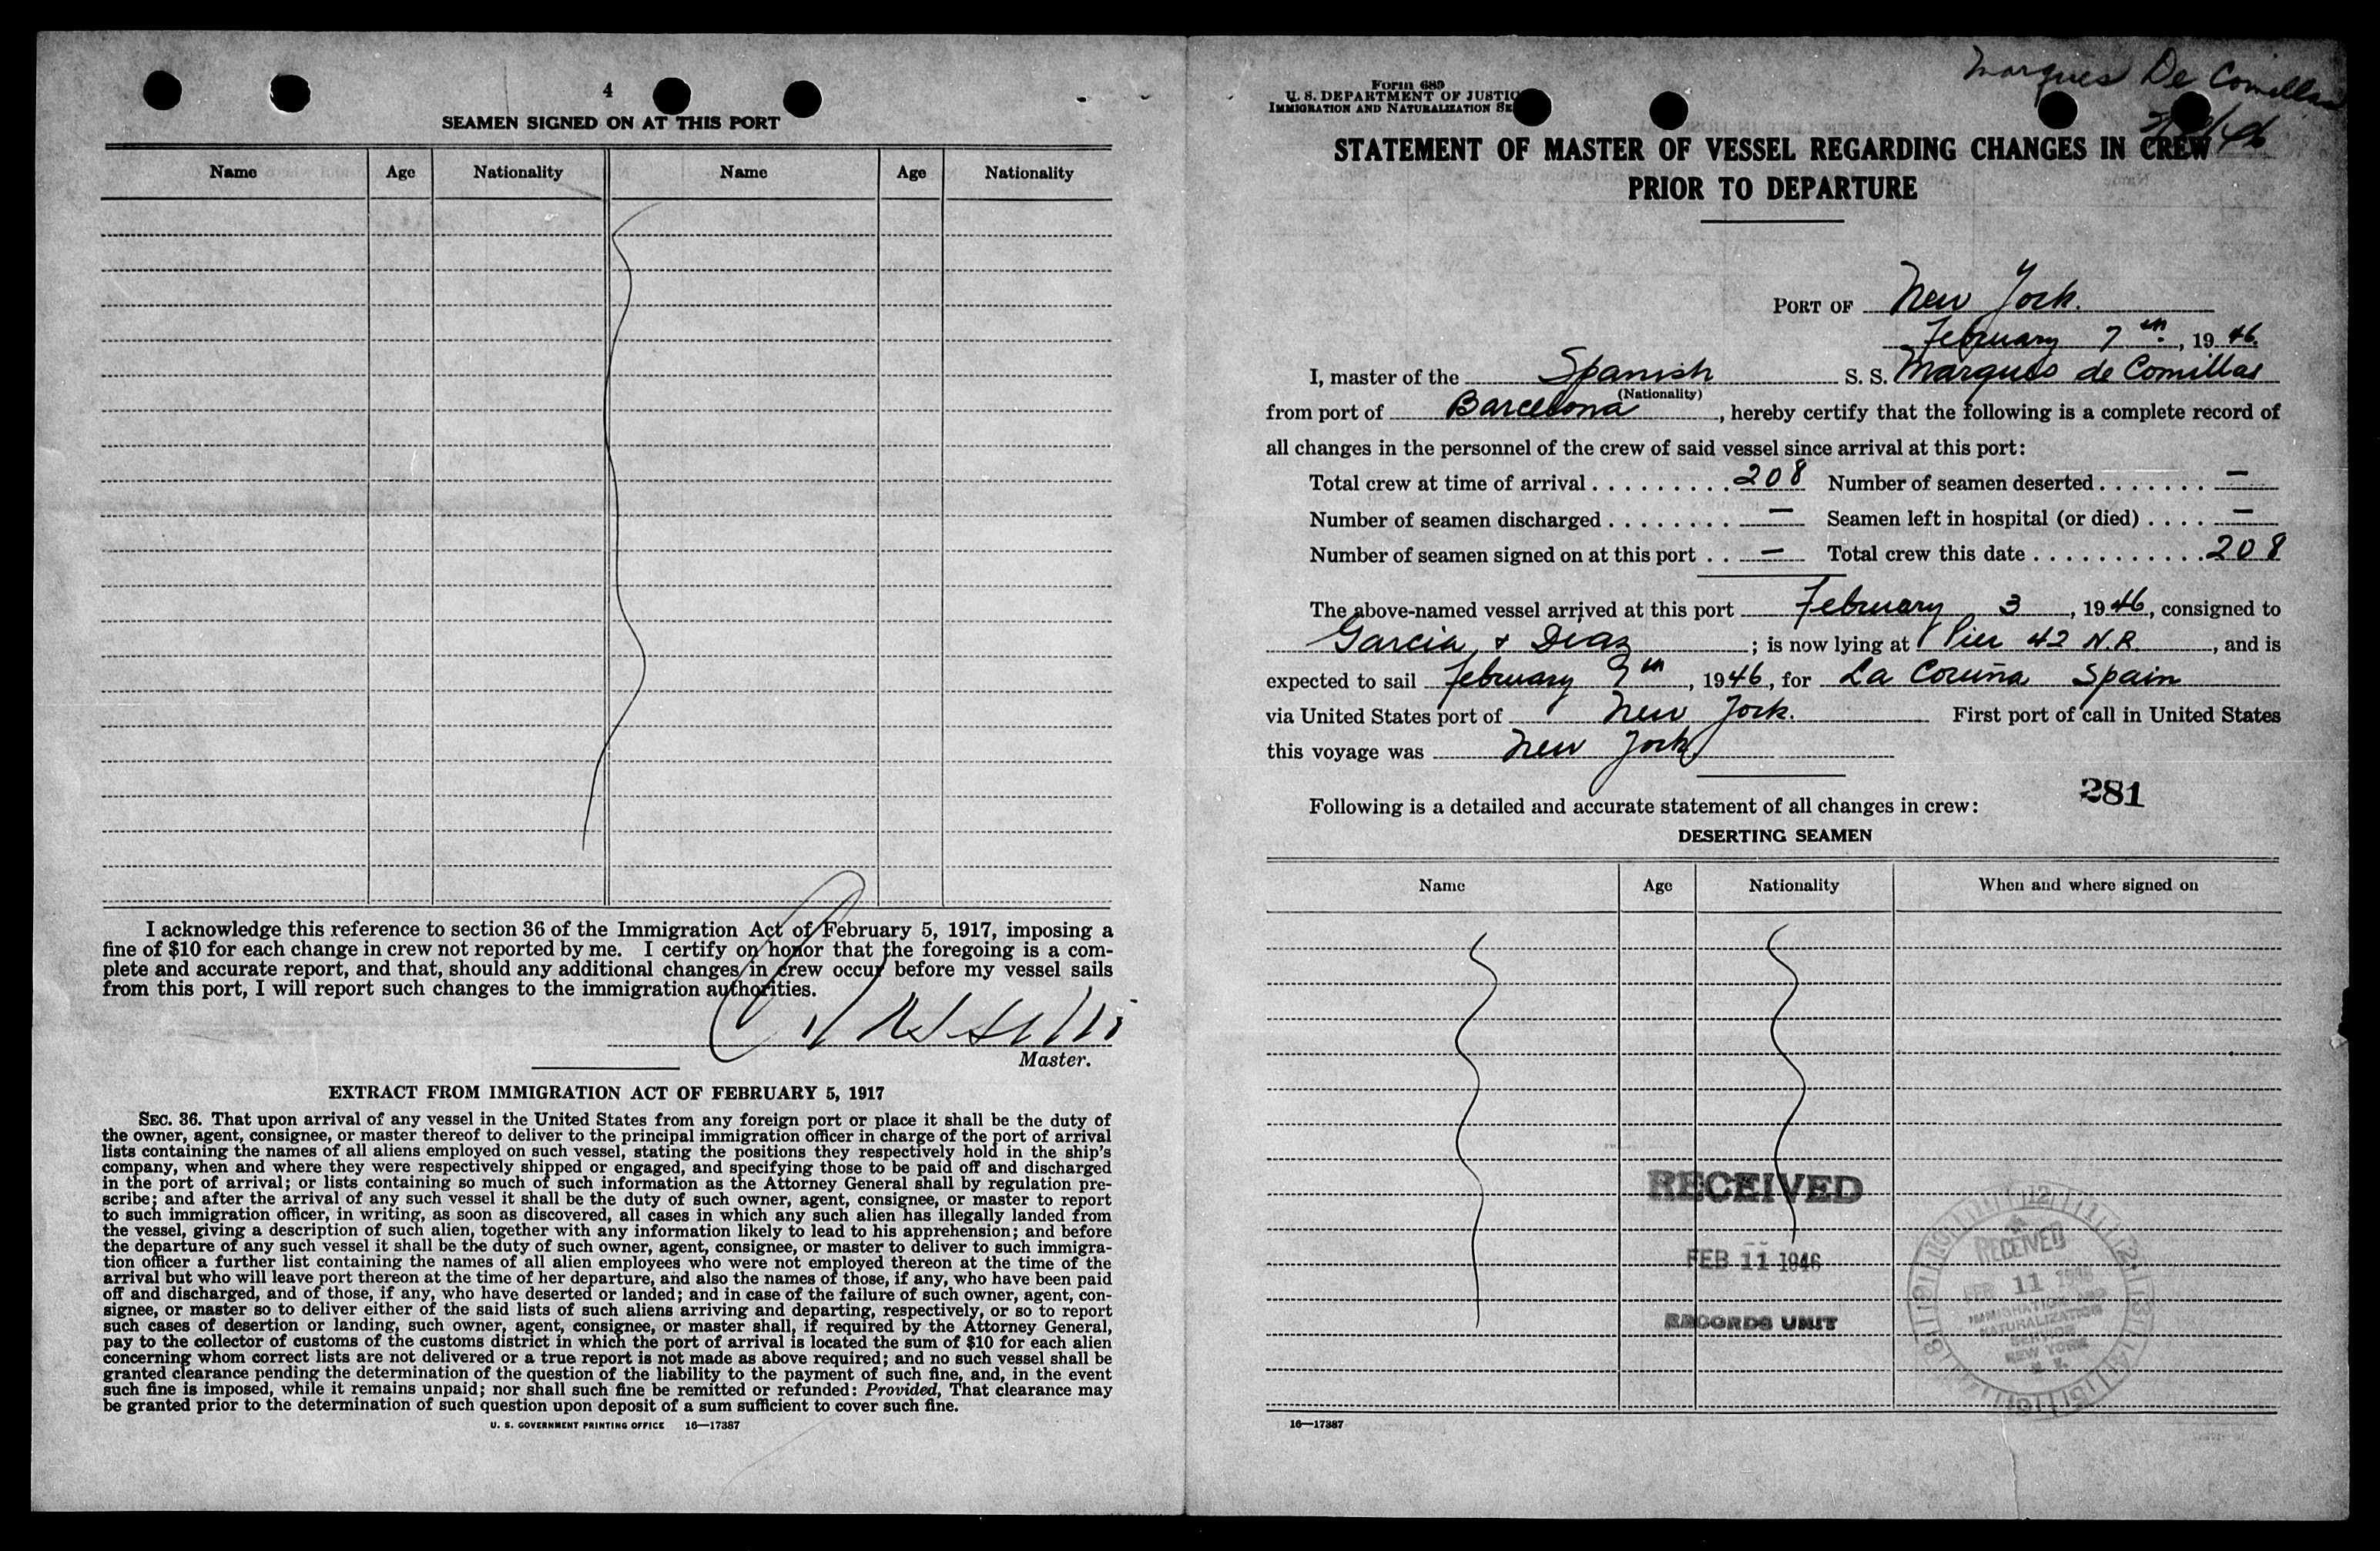 4
SEAMEN SIGNED ON AT THIS PORT
Name Age Nationality Name Age Nationality
I acknowledge this reference to section 36 of the Immigration Act of February 5, 1917, imposing a
fine of $10 for each change in crew not reported by me. I certify on honor that the foregoing is a com-
plete and accurate report, and that, should any additional changes in crew occur before my vessel sails
from this port, I will report such changes to the immigration authorities.
Master.
EXTRACT FROM IMMIGRATION ACT OF FEBRUARY 5, 1917
SEC. 36. That upon arrival of any vessel in the United States from any foreign port or place it shall be the duty of
the owner, agent, consignee, or master thereof to deliver to the principal immigration officer in charge of the port of arrival
lists containing the names of all aliens employed on such vessel, stating the positions they respectively hold in the ship's
company, when and where they were respectively shipped or engaged, and specifying those to be paid off and discharged
in the port of arrival; or lists containing so much of such information as the Attorney General shall by regulation pre-
scribe; and after the arrival of any such vessel it shall be the duty of such owner, agent, consignee, or master to report
to such immigration officer, in writing, as soon as discovered, all cases in which any such alien has illegally landed from
the vessel, giving a description of such alien, together with any information likely to lead to his apprehension; and before
the departure of any such vessel it shall be the duty of such owner, agent, consignee, or master to deliver to such immigra-
tion officer a further list containing the names of all alien employees who were not employed thereon at the time of the
arrival but who will leave port thereon at the time of her departure, and also the names of those, if any, who have been paid
off and discharged, and of those, if any, who have deserted or landed; and in case of the failure of such owner, agent, con-
signee, or master so to deliver either of the said lists of such aliens arriving and departing, respectively, or so to report
such cases of desertion or landing, such owner, agent, consignee, or master shall, if required by the Attorney General,
pay to the collector of customs of the customs district in which the port of arrival is located the sum of $10 for each alien
concerning whom correct lists are not delivered or a true report is not made as above required; and no such vessel shall be
granted clearance pending the determination of the question of the liability to the payment of such fine, and, in the event
such fine is imposed, while it remains unpaid; nor shall such fine be remitted or refunded: Provided, That clearance may
be granted prior to the determination of such question upon deposit of a sum sufficient to cover such fine.
U. S. GOVERNMENT PRINTING OFFICE 16—17387
Marques De Comillas
Form 689
U. S. DEPARTMENT OF JUSTIC
IMMIGRATION AND NATURALIZATION SE
STATEMENT OF MASTER OF VESSEL REGARDING CHANGES IN CREW
PRIOR TO DEPARTURE
PORT OF New York.
February 7th., 1946.
I, master of the Spanish S. S. Marques de Comillas
(Nationality)
from port of Barcelona, hereby certify that the following is a complete record of
all changes in the personnel of the crew of said vessel since arrival at this port:
Total crew at time of arrival . . . . . . . . . 208 Number of seamen deserted . . . . . . . —
Number of seamen discharged . . . . . . . . — Seamen left in hospital (or died) . . . . —
Number of seamen signed on at this port . . — Total crew this date . . . . . . . . . . . 208
The above-named vessel arrived at this port February 3, 1946, consigned to
Garcia & Diaz; is now lying at Pier 42 N.R., and is
expected to sail February 9th, 1946, for La Coruña Spain
via United States port of New York. First port of call in United States
this voyage was New York
281
Following is a detailed and accurate statement of all changes in crew:
DESERTING SEAMEN
Name Age Nationality When and where signed on
RECEIVED
FEB 11 1946
RECORDS UNIT
RECEIVED
FEB 11 1946
IMMIGRATION AND
NATURALIZATION
SERVICE
NEW YORK
N. Y.
16—17387